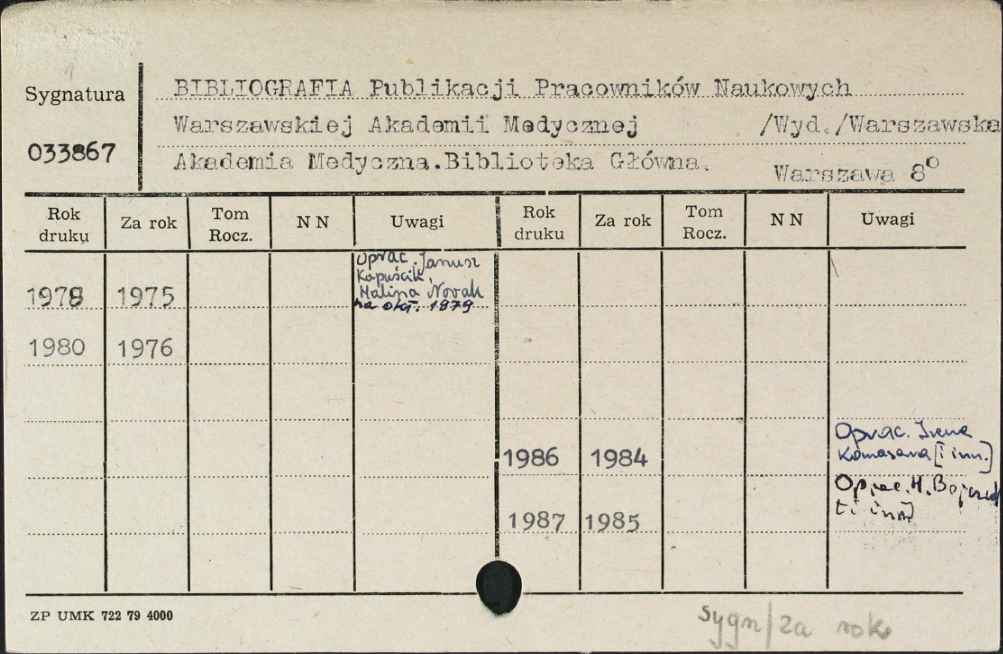 BIBLIOGRAFIA Publikacji Pracowników Naukowych
Sygnatura
Warszawskiej Akademii Medycznej /Wyd./Warszawska
033867
Akademia Medyczna.Biblioteka Główna. Warszawa 8°
Rok druku Za rok Tom Rocz. N N Uwagi Rok druku Za rok Tom Rocz. N N Uwagi
Oprac. Janusz
Kapuścik,
1978 1975 Halina Novak
na okł. 1979
1980 1976
Oprac. Irena
1986 1984 Komasara [i inn.]
Oprac. H.
1987 1985 [i inn]
ZP UMK 722 79 4000
Sygn/za rok